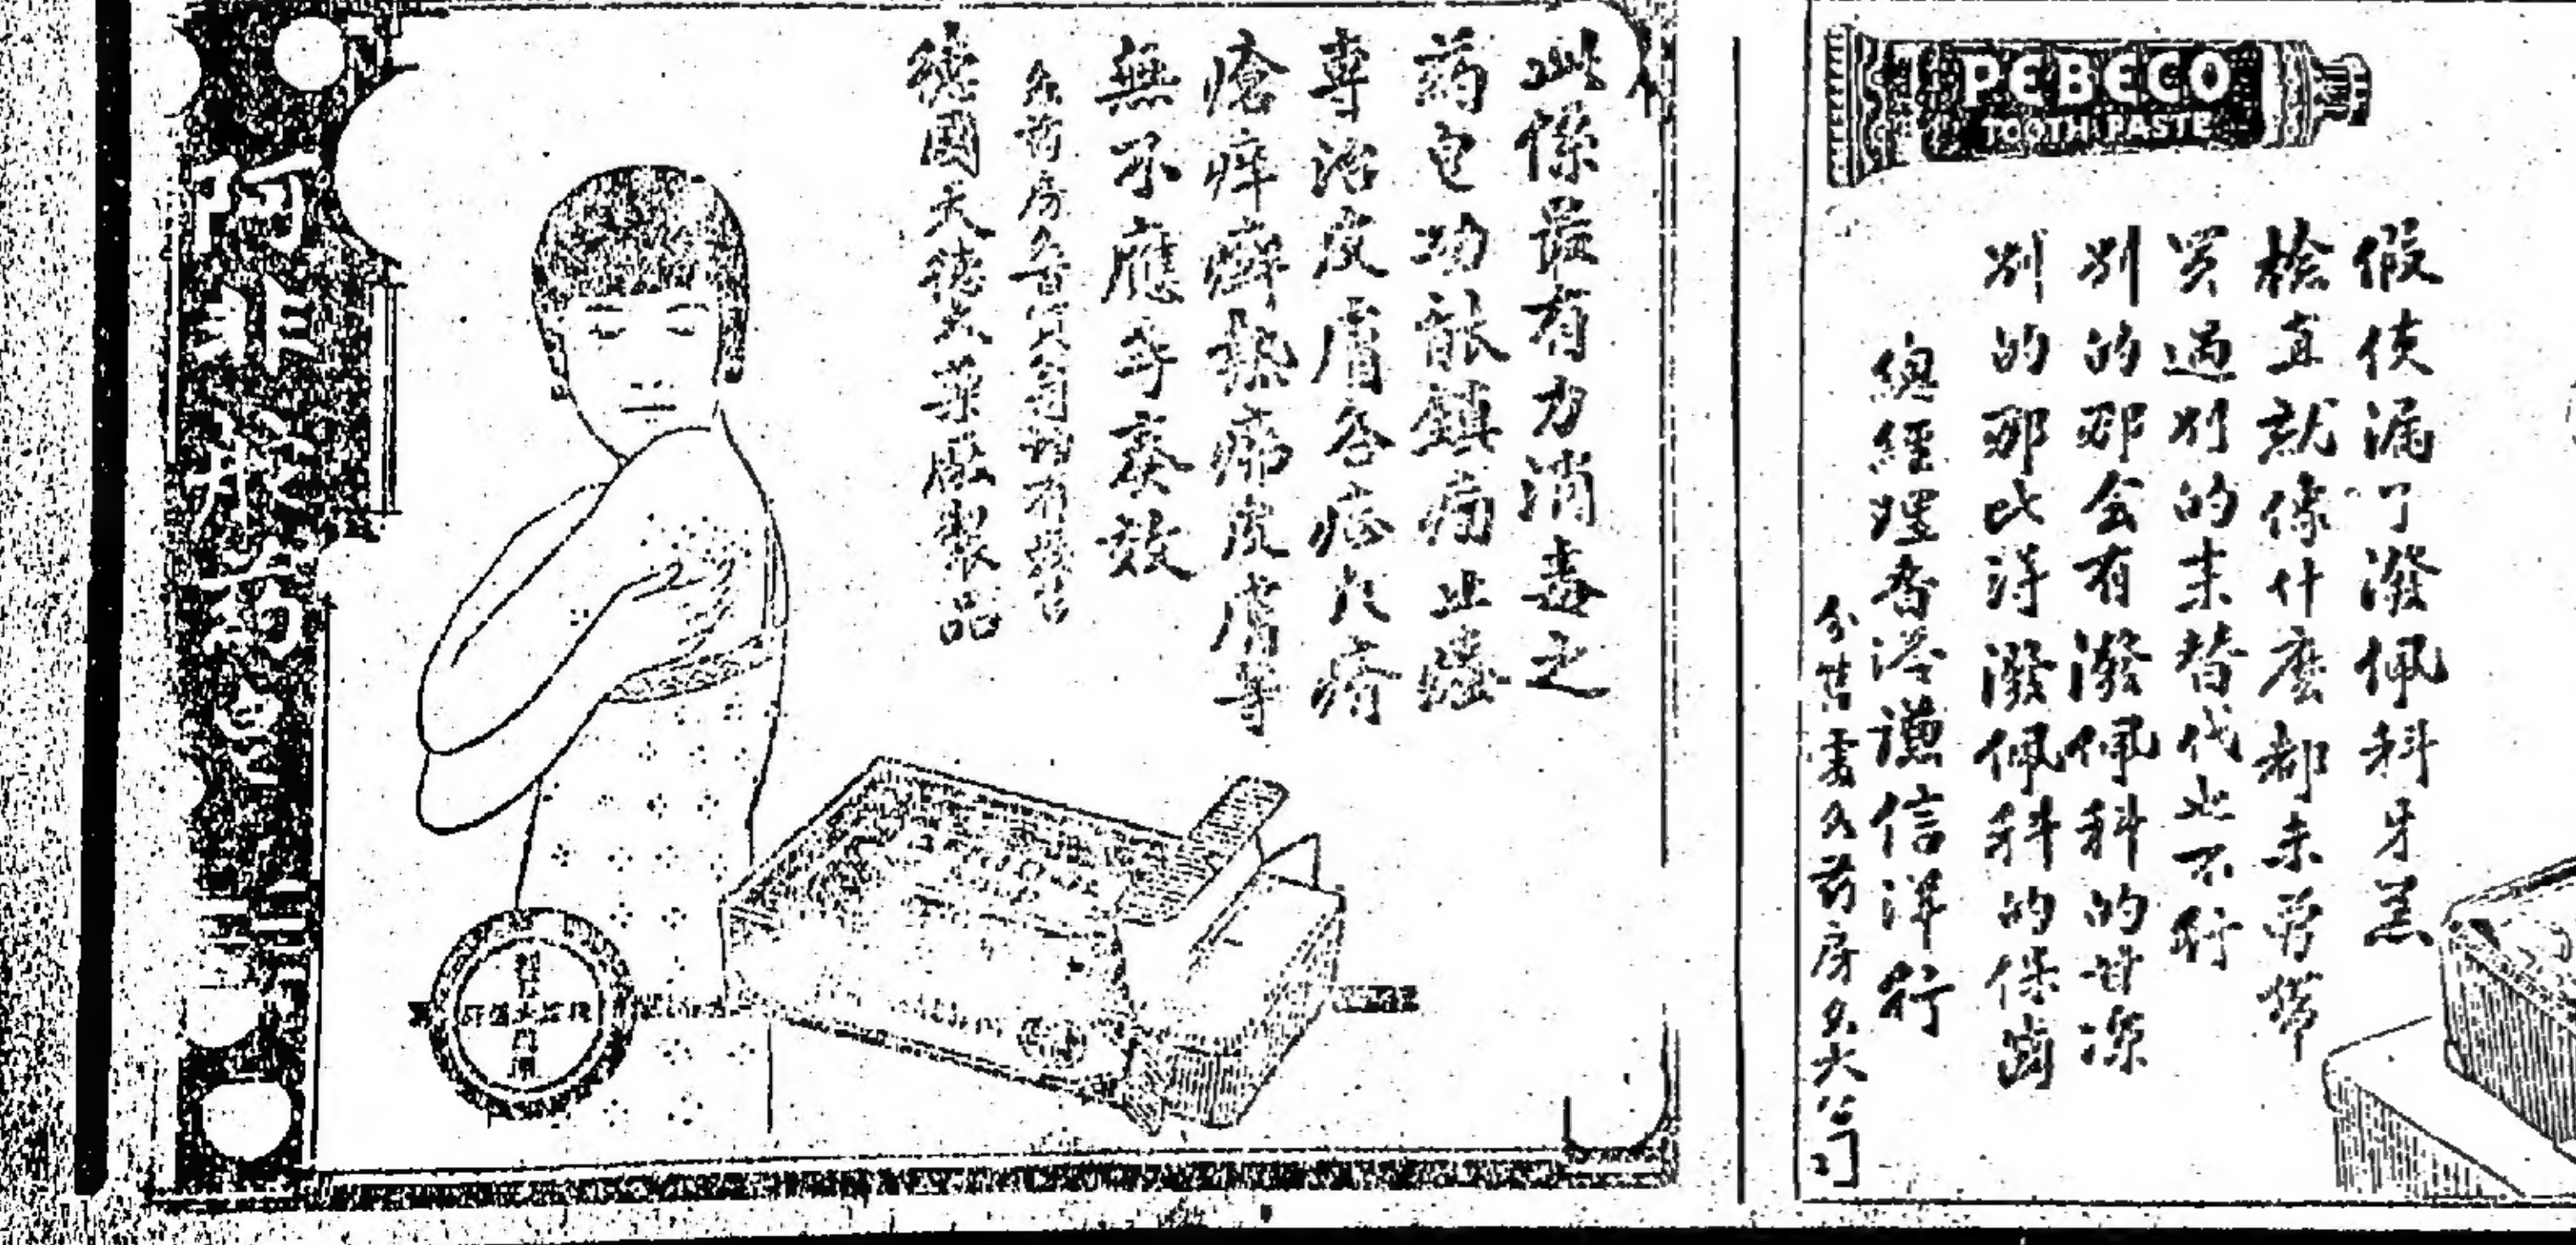 PEBECO
TOOTH PASTE
假使漏了潑佩科牙羔
檢直就像什麼都未曾帶
买過别的来替代也不行
别的那会有潑佩科的甘凉
别的那比得潑佩科的保齒
總經理香港謙信洋行
分售處各药房各大公司
此係最有力消毒之
药皂功能鎮痛止癢
專治皮膚各症凡疥
瘡痒癬热痱皮膚等
無不應手奏效
各药房各
德國天德大药厰製品